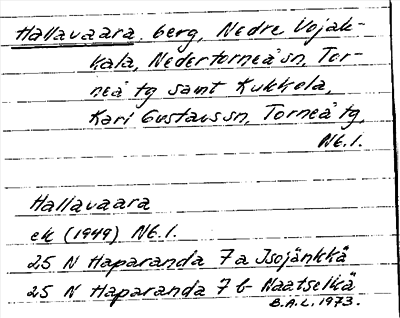 Hallavaara, berg, Nedre Vojak-
kala, Nedertorneå sn, Tor-
neå tg samt Kukkola,
Karl Gustavs sn, Torneå tg,
Nb. l.
Hallavaara
ek (1949) Nb. l.
25 N Haparanda 7 a Isojänkkä
25 N Haparanda 7 b Naatselkä
B.A.L. 1973.